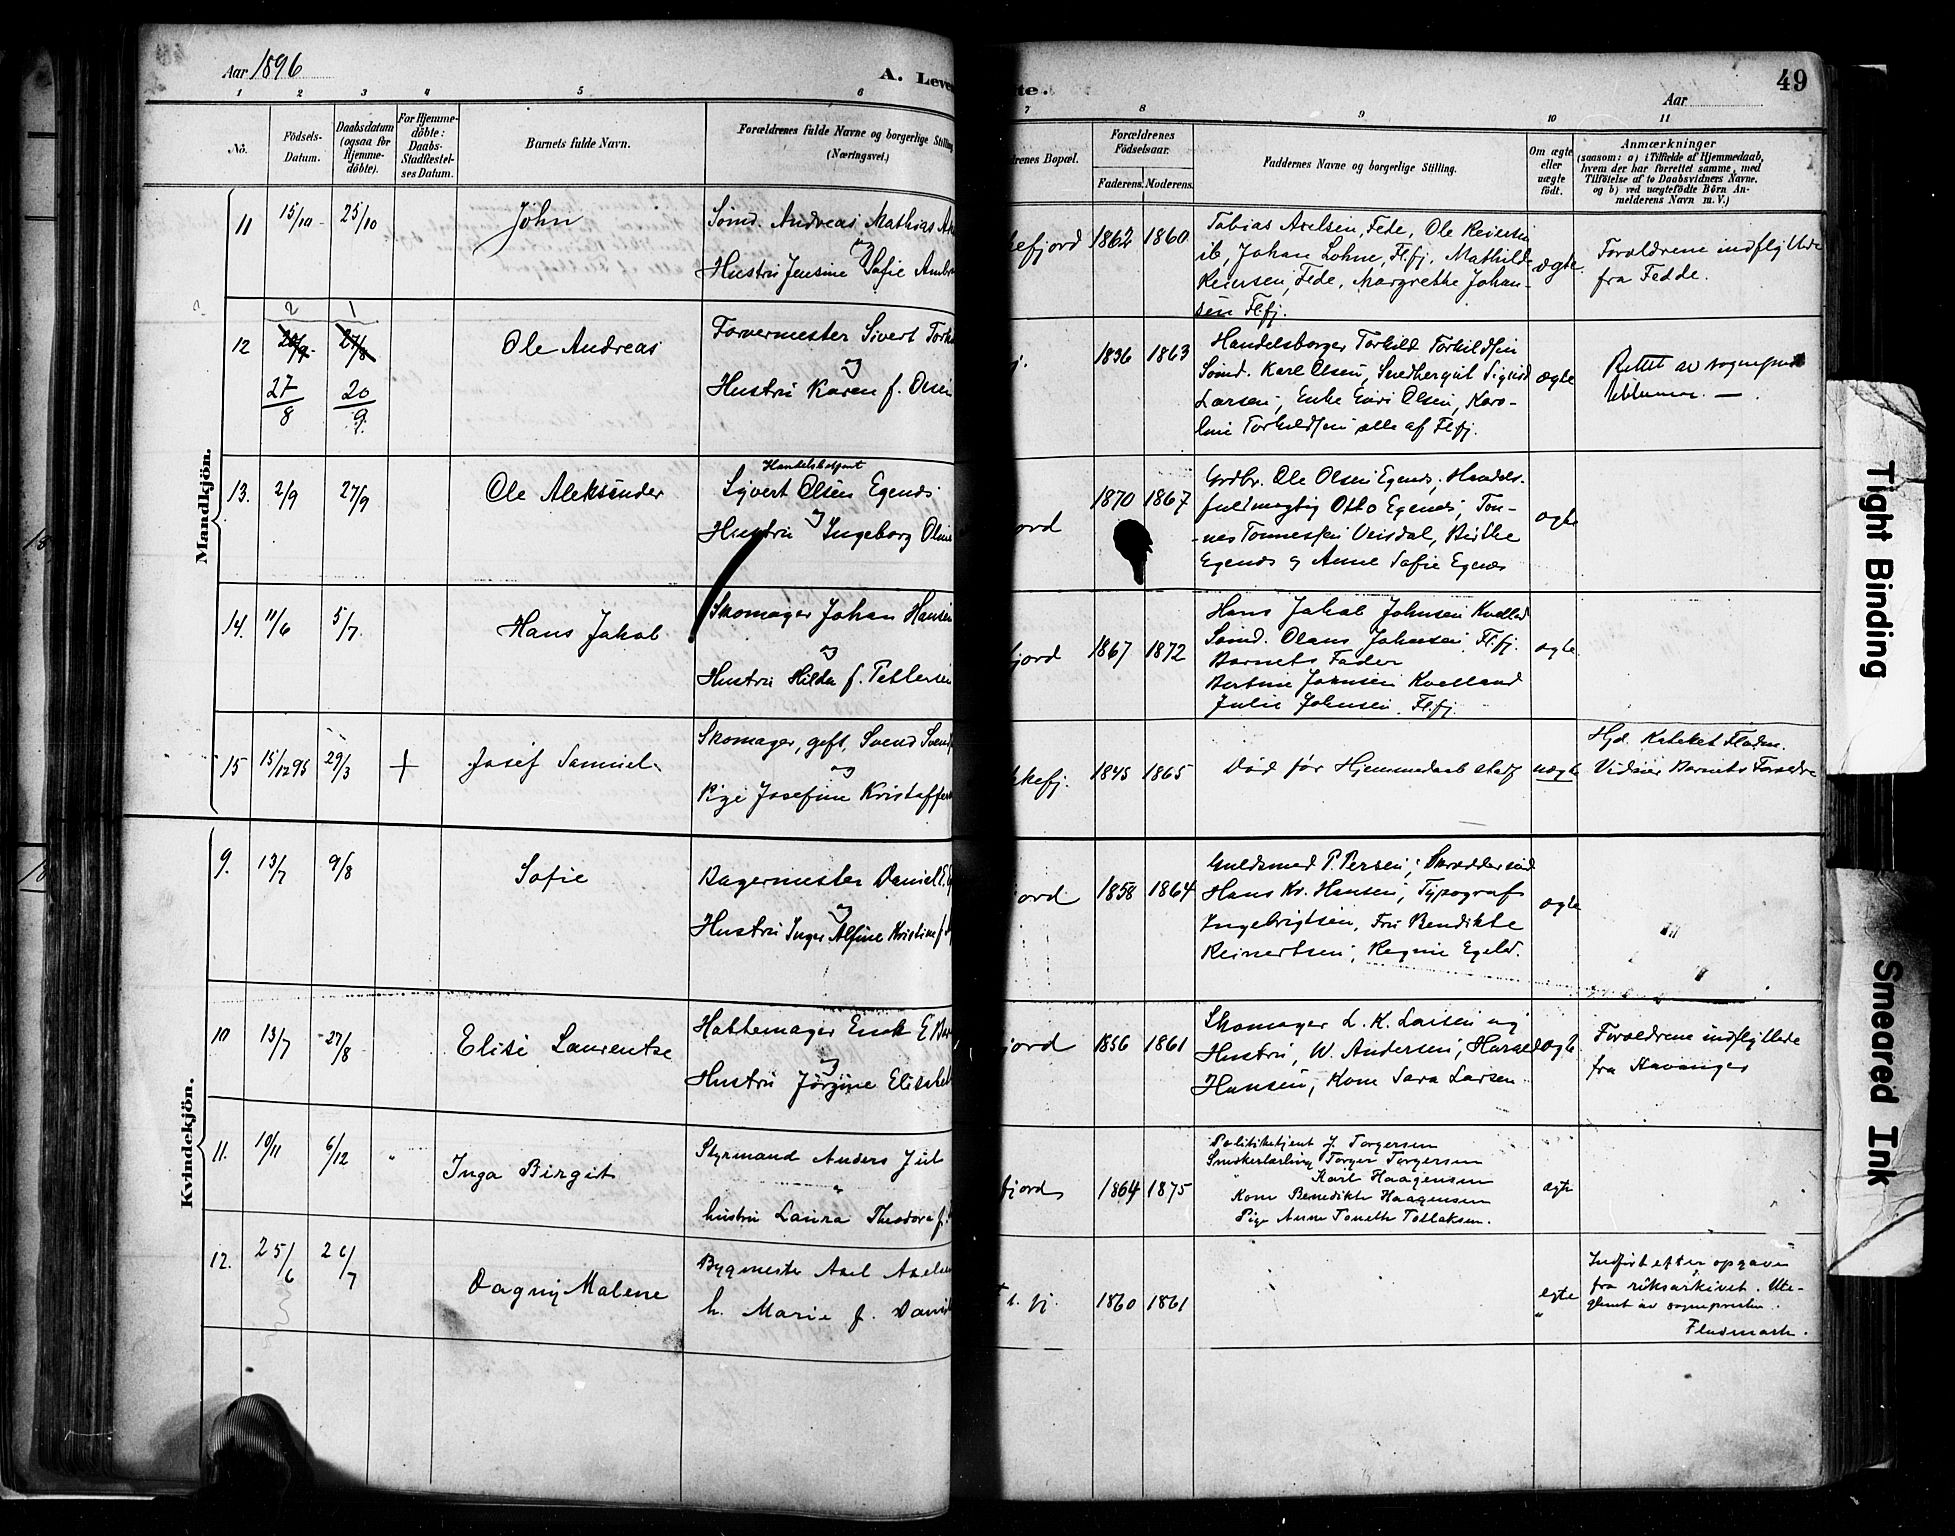 Aar 1896
A. Leve
te.
Aar
49
1 2 3 4 5 6 7 8 9 10 11
No.
Födsels-
Datum.
Daabsdatum
(ogsaa for
Hjemme-
døbte).
For Hjemme-
döbte:
Daabs-
Stadfæstel-
ses Datum.
Barnets fulde Navn.
Forældrenes fulde Navne og borgerlige Stilling
(Næringsvei.)
drenes Bopæl.
Forældrenes
Födselsaar.
Faderens. Moderens.
Faddernes Navne og borgerlige Stilling.
Om ægte
eller
uægte
født.
Anmærkninger
(saasom: a) i Tilfælde af Hjemmedaab,
hvem der har forrettet samme, med
Tilföielse af to Daabsvidners Navne,
og b) ved uægtefödte Börn An-
melderens Navn m. V.)
Mandkjön.
11 15/10 25/10
John
Sömd. Andreas Mathias
og
Hustru Jensine Sofie
kefjord 1862 1860
Tobias Axelsen, Fede, Ole Reiersen
ib, Johan Lohne, Fl.fj. Mathilde
Reiersen, Fede, Margrethe Johan-
sen Fl.fj.
ægte
Forældrene indflyttede
fra Fedde.
2 1
12 20/9 27/8
27/8 20/9
Ole Andreas
Farvermester Sivert
og
Hustru Karen f. Olsen
j. 1836 1863
Handelsborger Torkild Torkildsen
Sömd. Karl Olsen, Sigurd
Larsen, Enke Olsen, Karo-
line Torkildsen alle af Fl.fj.
ægte
Rettet av
13. 2/9 27/9
Ole Aleksander
Handelsbetjent
Syvert Olsen Egenes
og
Hustru Ingeborg
ord 1870 1867
Grdbr. Ole Olsen Egenes, Handels-
fuldmægtig Otto Egenes, Tøn-
nes Tønnessen Veisdal, Birthe
Egenes og Anne Sofie Egenes
ægte
14. 11/6 5/7.
Hans Jakob
Skomager Johan Hansen
og
Hustru Hilda f. Pettersen
fjord 1867 1872
Hans Jakob Johnsen Kvelland
Sömd. Olaus Johnsen, Fl.fj.
Barnets Fader
Bertine Johnsen Kvelland
Julie Johnsen, Fl.fj.
ægte.
15 15/12 95 29/3 +
Josef Samuel
Skomager, gift, Svend
og
Pige Josefine
kkefj. 1845 1865
Död för Hjemmedaab stadf
uægte
Hjd. Kateket
Vidner Barnets
Kvindekjön.
9. 13/7 9/8
Sofie
Bagermester Daniel
og
Hustru Inger Alfine Kristine f.
jord 1858 1864
Guldsmed P. Persen, Skræddersvend
Hans Kr. Hansen, Typograf
Ingebrigtsen, Fru Bendikte
Reinertsen, Regine
ægte
10 13/7 27/8
Elise Laurentze
Hattemager
og
Hustru Jörgine
jord 1856 1861
Skomager L. K. Larsen og
Hustru, W. Andersen, Harald
Hansen, Kone Sara Larsen
ægte
Forældrene indflyttede
fra Stavanger
11. 10/11 6/12 "
Inga Birgit
Styrmand Anders Juel
hustru Laura Theodora f.
fjord 1864 1875
Politibetjent J. Torgersen
Snedkerlærling Torger Torgersen
" Karl Haagensen
Kone Benedikte Haagensen
Pige Anne Tonette Tollaksen.
ægte
12. 25/6 26/7
Dagny Malene
Bygmester Axel Axelsen
h. Marie f.
Fl. fj. 1860 1861
egte
"
Indført efter opgave
fra riksarkivet. Ute-
glemt av sognepresten.
Flødmark.
Tight Binding
Smeared Ink